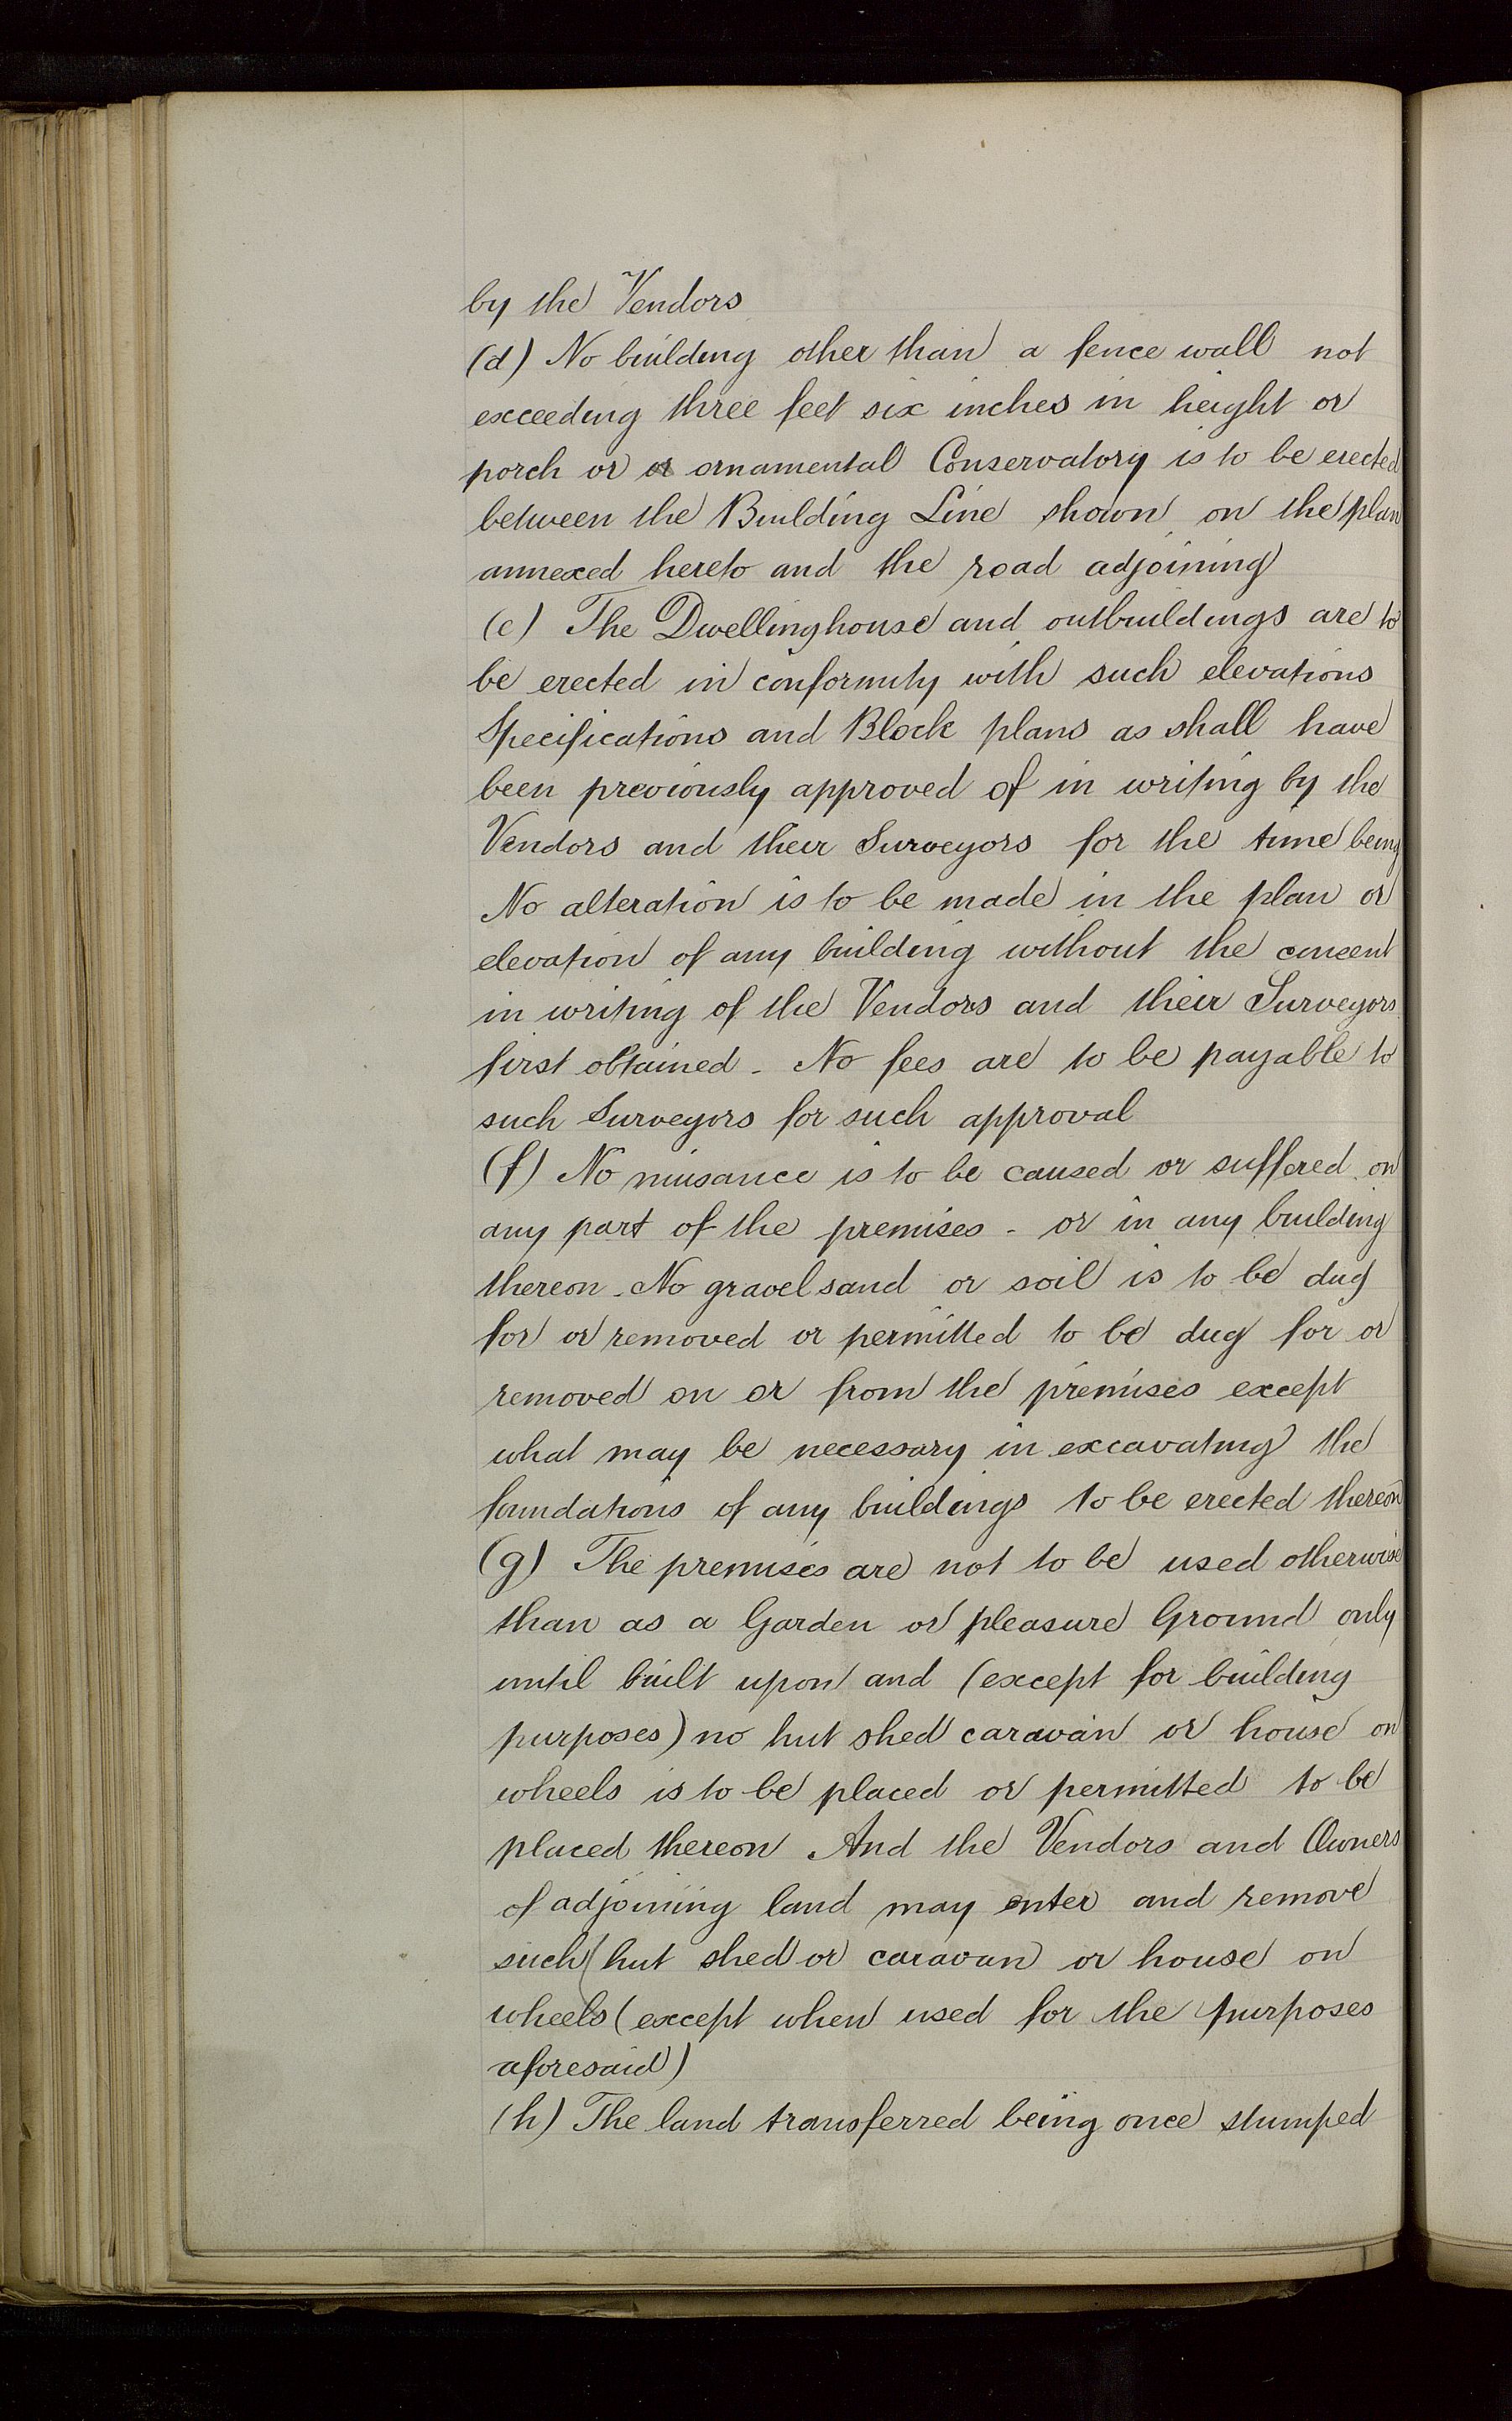 by the Vendors
(d) No building other than a fence wall not
exceeding three feet six inches in height or
porch or or ornamental Conservatory is to be erected
between the Building Line shown on the plan
annexed hereto and the road adjoining
(e) The Dwellinghouse and outbuildings are to
be erected in conformity with such elevations
Specifications and Block plans as shall have
been previously approved of in writing by the
Vendors and their Surveyors for the time being
No alteration is to be made in the plan or
elevation of any building without the consent
in writing of the Vendors and their Surveyors
first obtained - No fees are to be payable to
such Surveyors for such approval
(f) No nuisance is to be caused or suffered on
any part of the premises - or in any building
thereon - No gravel sand or soil is to be dug
for or removed or permitted to be dug for or
removed on or from the premises except
what may be necessary in excavating the
foundations of any buildings to be erected thereon
(g) The premises are not to be used otherwise
than as a Garden or pleasure Ground only
until built upon and (except for building
purposes) no hut shed caravan or house on
wheels is to be placed or permitted to be
placed thereon And the Vendors and Owners
of adjoining land may enter and remove
such (hut shed or caravan or house on
wheels (except when used for the purposes
aforesaid)
(h) The land transferred being once stumped